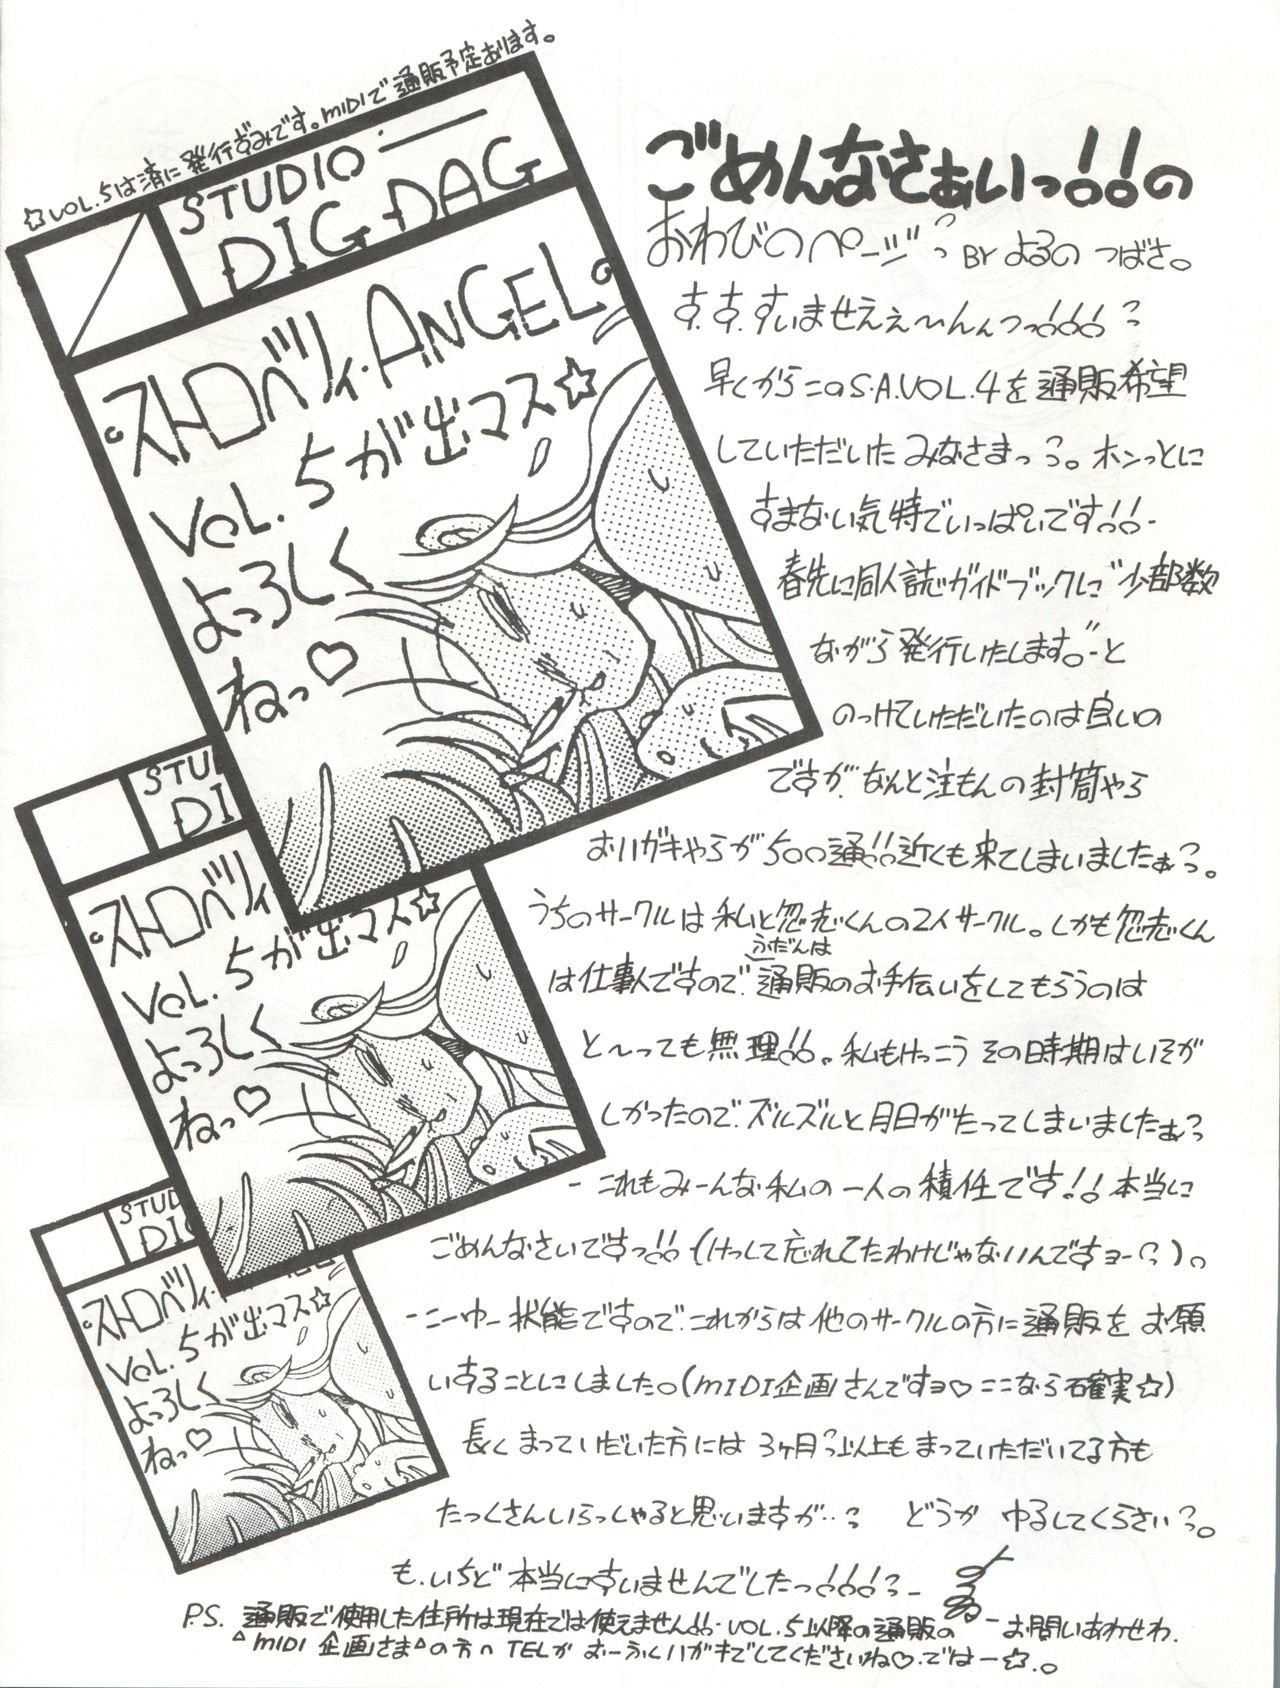 ☆VOL.5は済に発行ずみです。MIDIで通販予定あります。
STUDIO
DIG DAG
ストロベリィ・ANGEL
VOL.5が出マス☆
よっろしく
ねっ♡
STU
DI
ストロベリィ
VOL.5が出マス☆
よっろしく
ねっ♡
STUD
DIG
ストロベリィ・
VOL.5が出マス☆
よっろしく
ねっ♡
ごめんなさぁいっ!!の
おわびのページっ BY よるの つばさ。
す、す、すいませえぇ〜んんっっ!!!っ
早くからこのS・A.VOL.4を通販希望
していただいたみなさまっっ。ホンっとに
すまない気持でいっぱいです!!-
春先に同人誌ガイドブックに“少部数
ながら発行いたします。”-と
のっけていただいたのは良いの
ですが、なんと注もんの封筒やら
おハガキやらが500通!!近くも来てしまいましたぁっ。
うちのサークルは私と忽志くんの2人サークル。しかも忽志くん
は仕事人ですので、ふだんは通販のお手伝いをしてもらうのは
と〜っても無理!!。私もけっこうその時期はいそが
しかったので、ズルズルと月日がたってしまいましたぁっ
-これもみーんな私の一人の積任です!!本当に
ごめんなさいですっ!!(けっして忘れてたわけじゃないんですョーっ)。
-こーゆー状態ですので、これからは他のサークルの方に通販をお願
いすることにしました。(MIDI企画さんですョ♡ここなら確実☆)
長くまっていだいた方には3ヶ月っ以上もまっていただいてる方も
たっくさんいらっしゃると思いますが‥っ どうかゆるしてくらさいっ。
も、いちど本当にすいませんでしたっ!!!っ-
P.S. 通販で使用した住所は現在では使えません!!・VOL.5以降の通販の-お問いあわせわ、
△MIDI 企画さま△の方へTELか おーふくハガキでしてくださいね♡ではー☆。